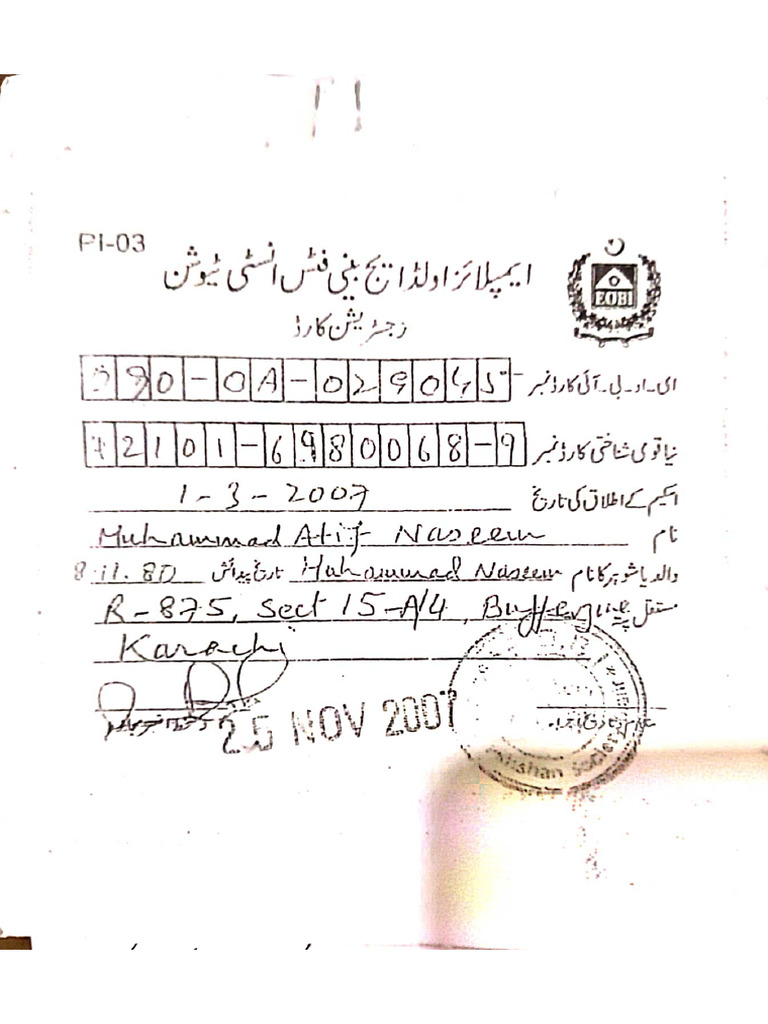 PI-03
ایمپلائز اولڈ ایج بینی فٹس انسٹی ٹیوشن
EOBI
رجسٹریشن کارڈ
ای-او-بی-آئی کارڈ نمبر 90-0A-029045
نیا قومی شناختی کارڈ نمبر 42101-6980068-9
اسکیم کے اطلاق کی تاریخ 1-3-2007
نام Muhammad Atif Naseem
والد یا شوہر کا نام Muhammad Naseem تاریخ پیدائش 8.11.80
مستقل پتہ R-875, Sect 15-A/4, Bufferzone
Karachi
25 NOV 2007
Society